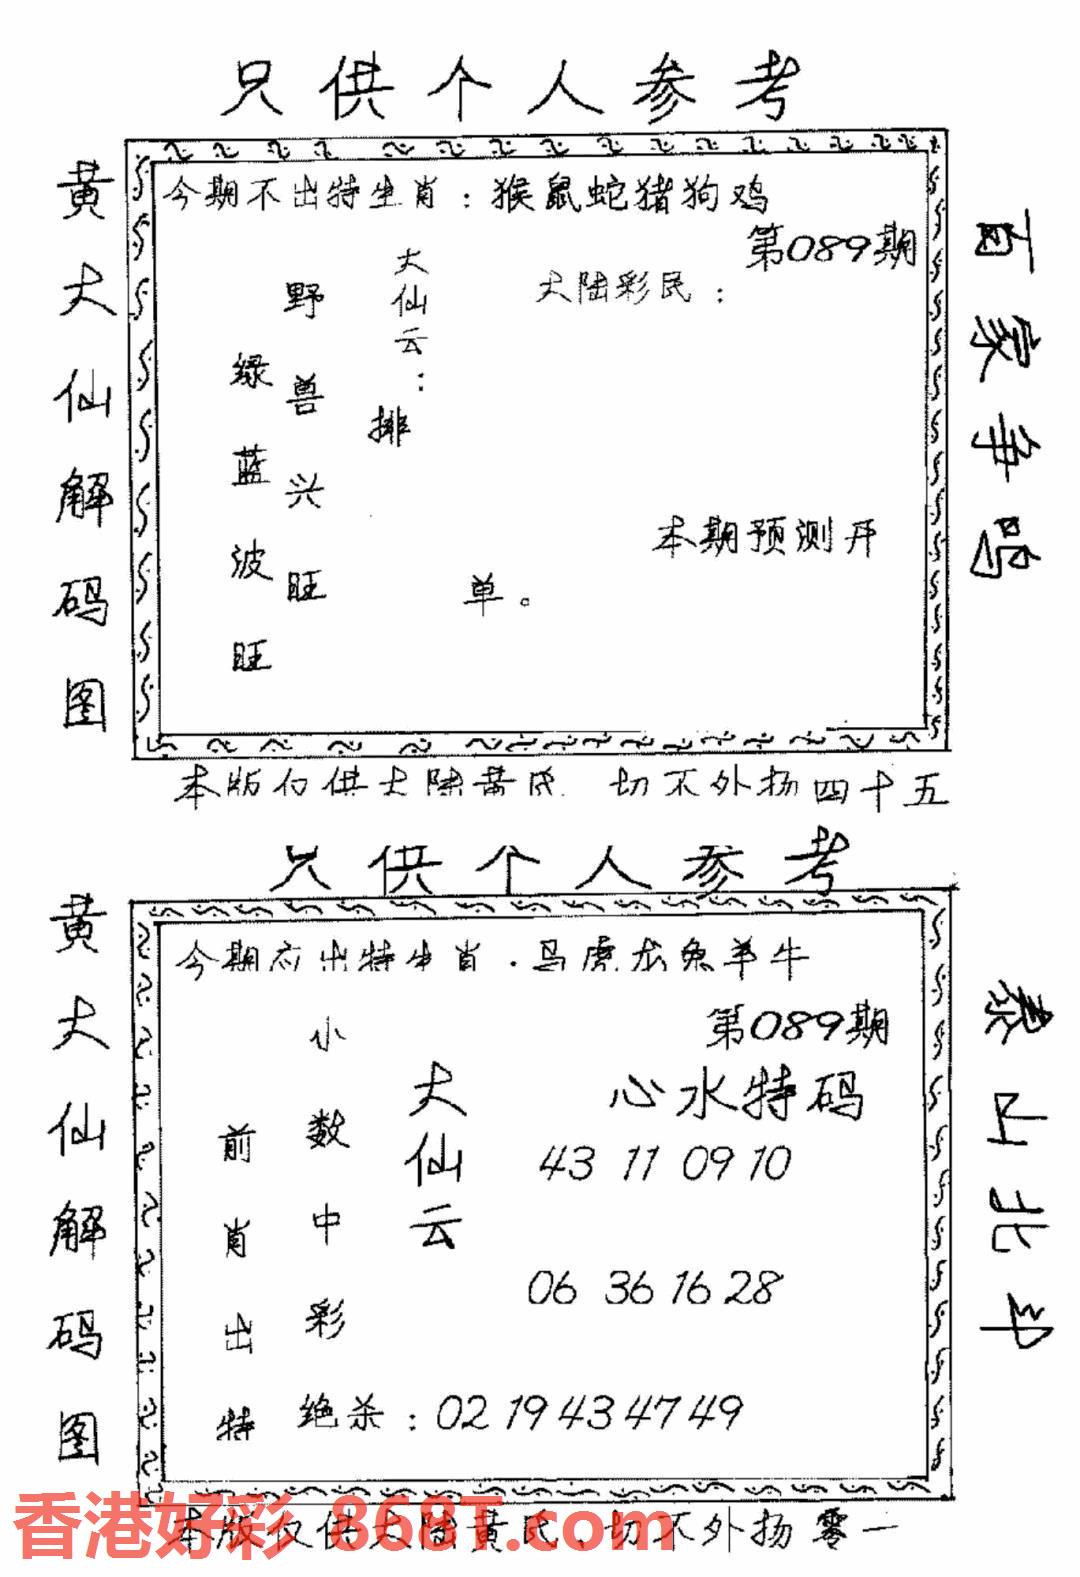 只供个人参考
黄大仙解码图
今期不出特生肖：猴鼠蛇猪狗鸡
第089期
大陆彩民：
大仙云：
排
单。
野兽兴旺
绿蓝波旺
本期预测开
百家争鸣
本版仅供大陆黄民 切不外扬四十五
只供个人参考
黄大仙解码图
今期应出特生肖：马虎龙兔羊牛
第089期
心水特码
43 11 09 10
06 36 16 28
大仙云
小数中彩
前肖出特
绝杀：02 19 43 47 49
泰山北斗
本版仅供大陆黄民，切不外扬 零一
香港好彩 868T.com